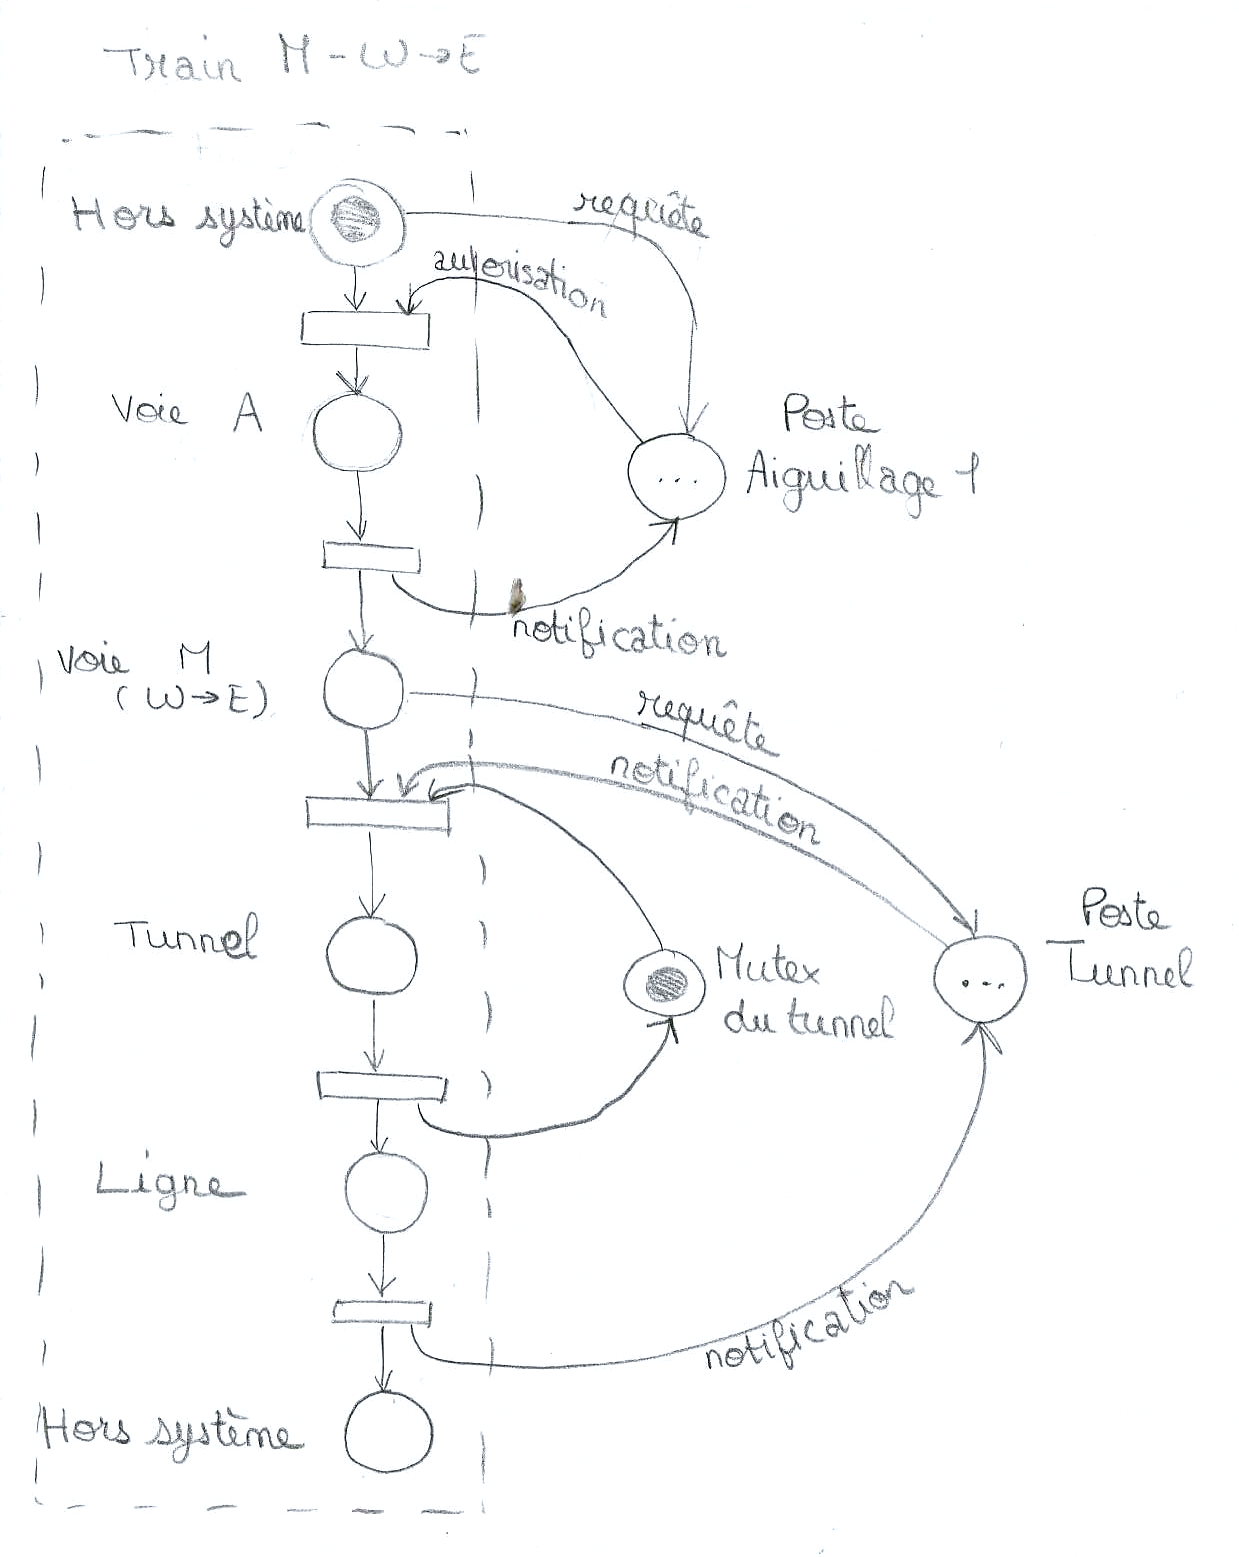 Train M - W → E
Hors système
requête
autorisation
Voie A
Poste
Aiguillage 1
...
notification
Voie M
(W → E)
requête
notification
Tunnel
Mutex
du tunnel
Poste
Tunnel
...
Ligne
notification
Hors système